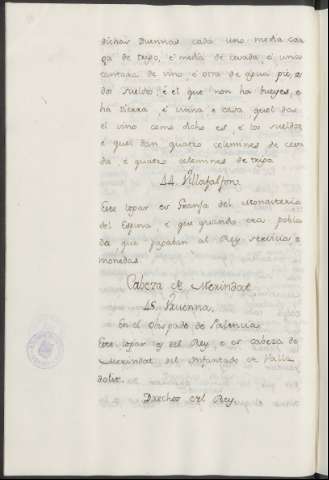 dichas Duennas cada uno media car
ga de trigo, é media de cevada, é unas
cantada de vino é otra de agua pie, e
dos sueldos, é el que non ha bueyes, e
ha tierra, é viña e casa quel das
el vino como dicho es, é los sueldos
é quel dan quatro celemines de ceva
da, é quatro celemines de trigo.
44. Villafalfon.
Este logar es Granja del Monasterio
del Espina, é que quando era pobla
da que pagaban al Rey servicios e
monedas.
Cabeza de Merindat
45. Duenna.
En el Obispado de Palencia
Este logar es del Rey, e es cabeza de
Merindat del Infantado de Valla
dolit.
Derechos del Rey.